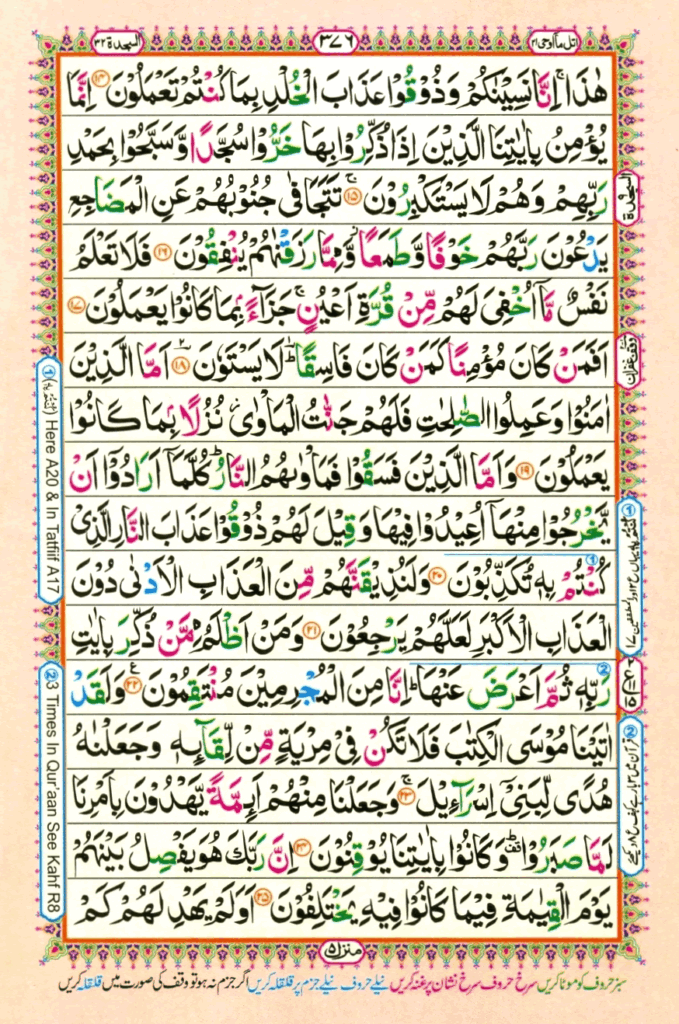 السجدة ٣٢
٣٧٦
اتل ما اوحی ٢١
هٰذَا ۚ اِنَّا نَسِيْنٰكُمْ وَذُوْقُوْا عَذَابَ الْخُلْدِ بِمَا كُنْتُمْ تَعْمَلُوْنَ ﴿۱۴﴾ اِنَّمَا
يُؤْمِنُ بِاٰيٰتِنَا الَّذِيْنَ اِذَا ذُكِّرُوْا بِهَا خَرُّوْا سُجَّدًا وَّسَبَّحُوْا بِحَمْدِ
رَبِّهِمْ وَهُمْ لَا يَسْتَكْبِرُوْنَ ﴿۱۵﴾ تَتَجَافٰى جُنُوْبُهُمْ عَنِ الْمَضَاجِعِ
يَدْعُوْنَ رَبَّهُمْ خَوْفًا وَّطَمَعًا ۫ وَّمِمَّا رَزَقْنٰهُمْ يُنْفِقُوْنَ ﴿۱۶﴾ فَلَا تَعْلَمُ
نَفْسٌ مَّاۤ اُخْفِيَ لَهُمْ مِّنْ قُرَّةِ اَعْيُنٍ ۚ جَزَآءًۢ بِمَا كَانُوْا يَعْمَلُوْنَ ﴿۱۷﴾
اَفَمَنْ كَانَ مُؤْمِنًا كَمَنْ كَانَ فَاسِقًا ؕ لَا يَسْتَوٗنَ ﴿۱۸﴾ اَمَّا الَّذِيْنَ
اٰمَنُوْا وَعَمِلُوا الصّٰلِحٰتِ فَلَهُمْ جَنّٰتُ الْمَاْوٰى ۡ نُزُلًاۢ بِمَا كَانُوْا
يَعْمَلُوْنَ ﴿۱۹﴾ وَاَمَّا الَّذِيْنَ فَسَقُوْا فَمَاْوٰىهُمُ النَّارُ ؕ كُلَّمَاۤ اَرَادُوْۤا اَنْ
يَّخْرُجُوْا مِنْهَاۤ اُعِيْدُوْا فِيْهَا وَقِيْلَ لَهُمْ ذُوْقُوْا عَذَابَ النَّارِ الَّذِيْ
كُنْتُمْ بِهٖ تُكَذِّبُوْنَ ﴿۲۰﴾ وَلَنُذِيْقَنَّهُمْ مِّنَ الْعَذَابِ الْاَدْنٰى دُوْنَ
الْعَذَابِ الْاَكْبَرِ لَعَلَّهُمْ يَرْجِعُوْنَ ﴿۲۱﴾ وَمَنْ اَظْلَمُ مِمَّنْ ذُكِّرَ بِاٰيٰتِ
رَبِّهٖ ثُمَّ اَعْرَضَ عَنْهَا ؕ اِنَّا مِنَ الْمُجْرِمِيْنَ مُنْتَقِمُوْنَ ﴿۲۲﴾ وَلَقَدْ
اٰتَيْنَا مُوْسَى الْكِتٰبَ فَلَا تَكُنْ فِيْ مِرْيَةٍ مِّنْ لِّقَآئِهٖ وَجَعَلْنٰهُ
هُدًى لِّبَنِيْۤ اِسْرَآءِيْلَ ﴿۲۳﴾ وَجَعَلْنَا مِنْهُمْ اَئِمَّةً يَّهْدُوْنَ بِاَمْرِنَا
لَمَّا صَبَرُوْا ؕ وَكَانُوْا بِاٰيٰتِنَا يُوْقِنُوْنَ ﴿۲۴﴾ اِنَّ رَبَّكَ هُوَ يَفْصِلُ بَيْنَهُمْ
يَوْمَ الْقِيٰمَةِ فِيْمَا كَانُوْا فِيْهِ يَخْتَلِفُوْنَ ﴿۲۵﴾ اَوَلَمْ يَهْدِ لَهُمْ كَمْ
السجدة
وقف غفران
① Here A20 & In Tatfiif A17
② 3 Times In Qur'aan See Kahf R8
منزل ٥
سبز حروف کو موٹا کریں سرخ حروف سرخ نشان پر غنہ کریں نیلے حروف نیلے جزم پر قلقلہ کریں اگر جزم نہ ہو تو وقف کی صورت میں قلقلہ کریں